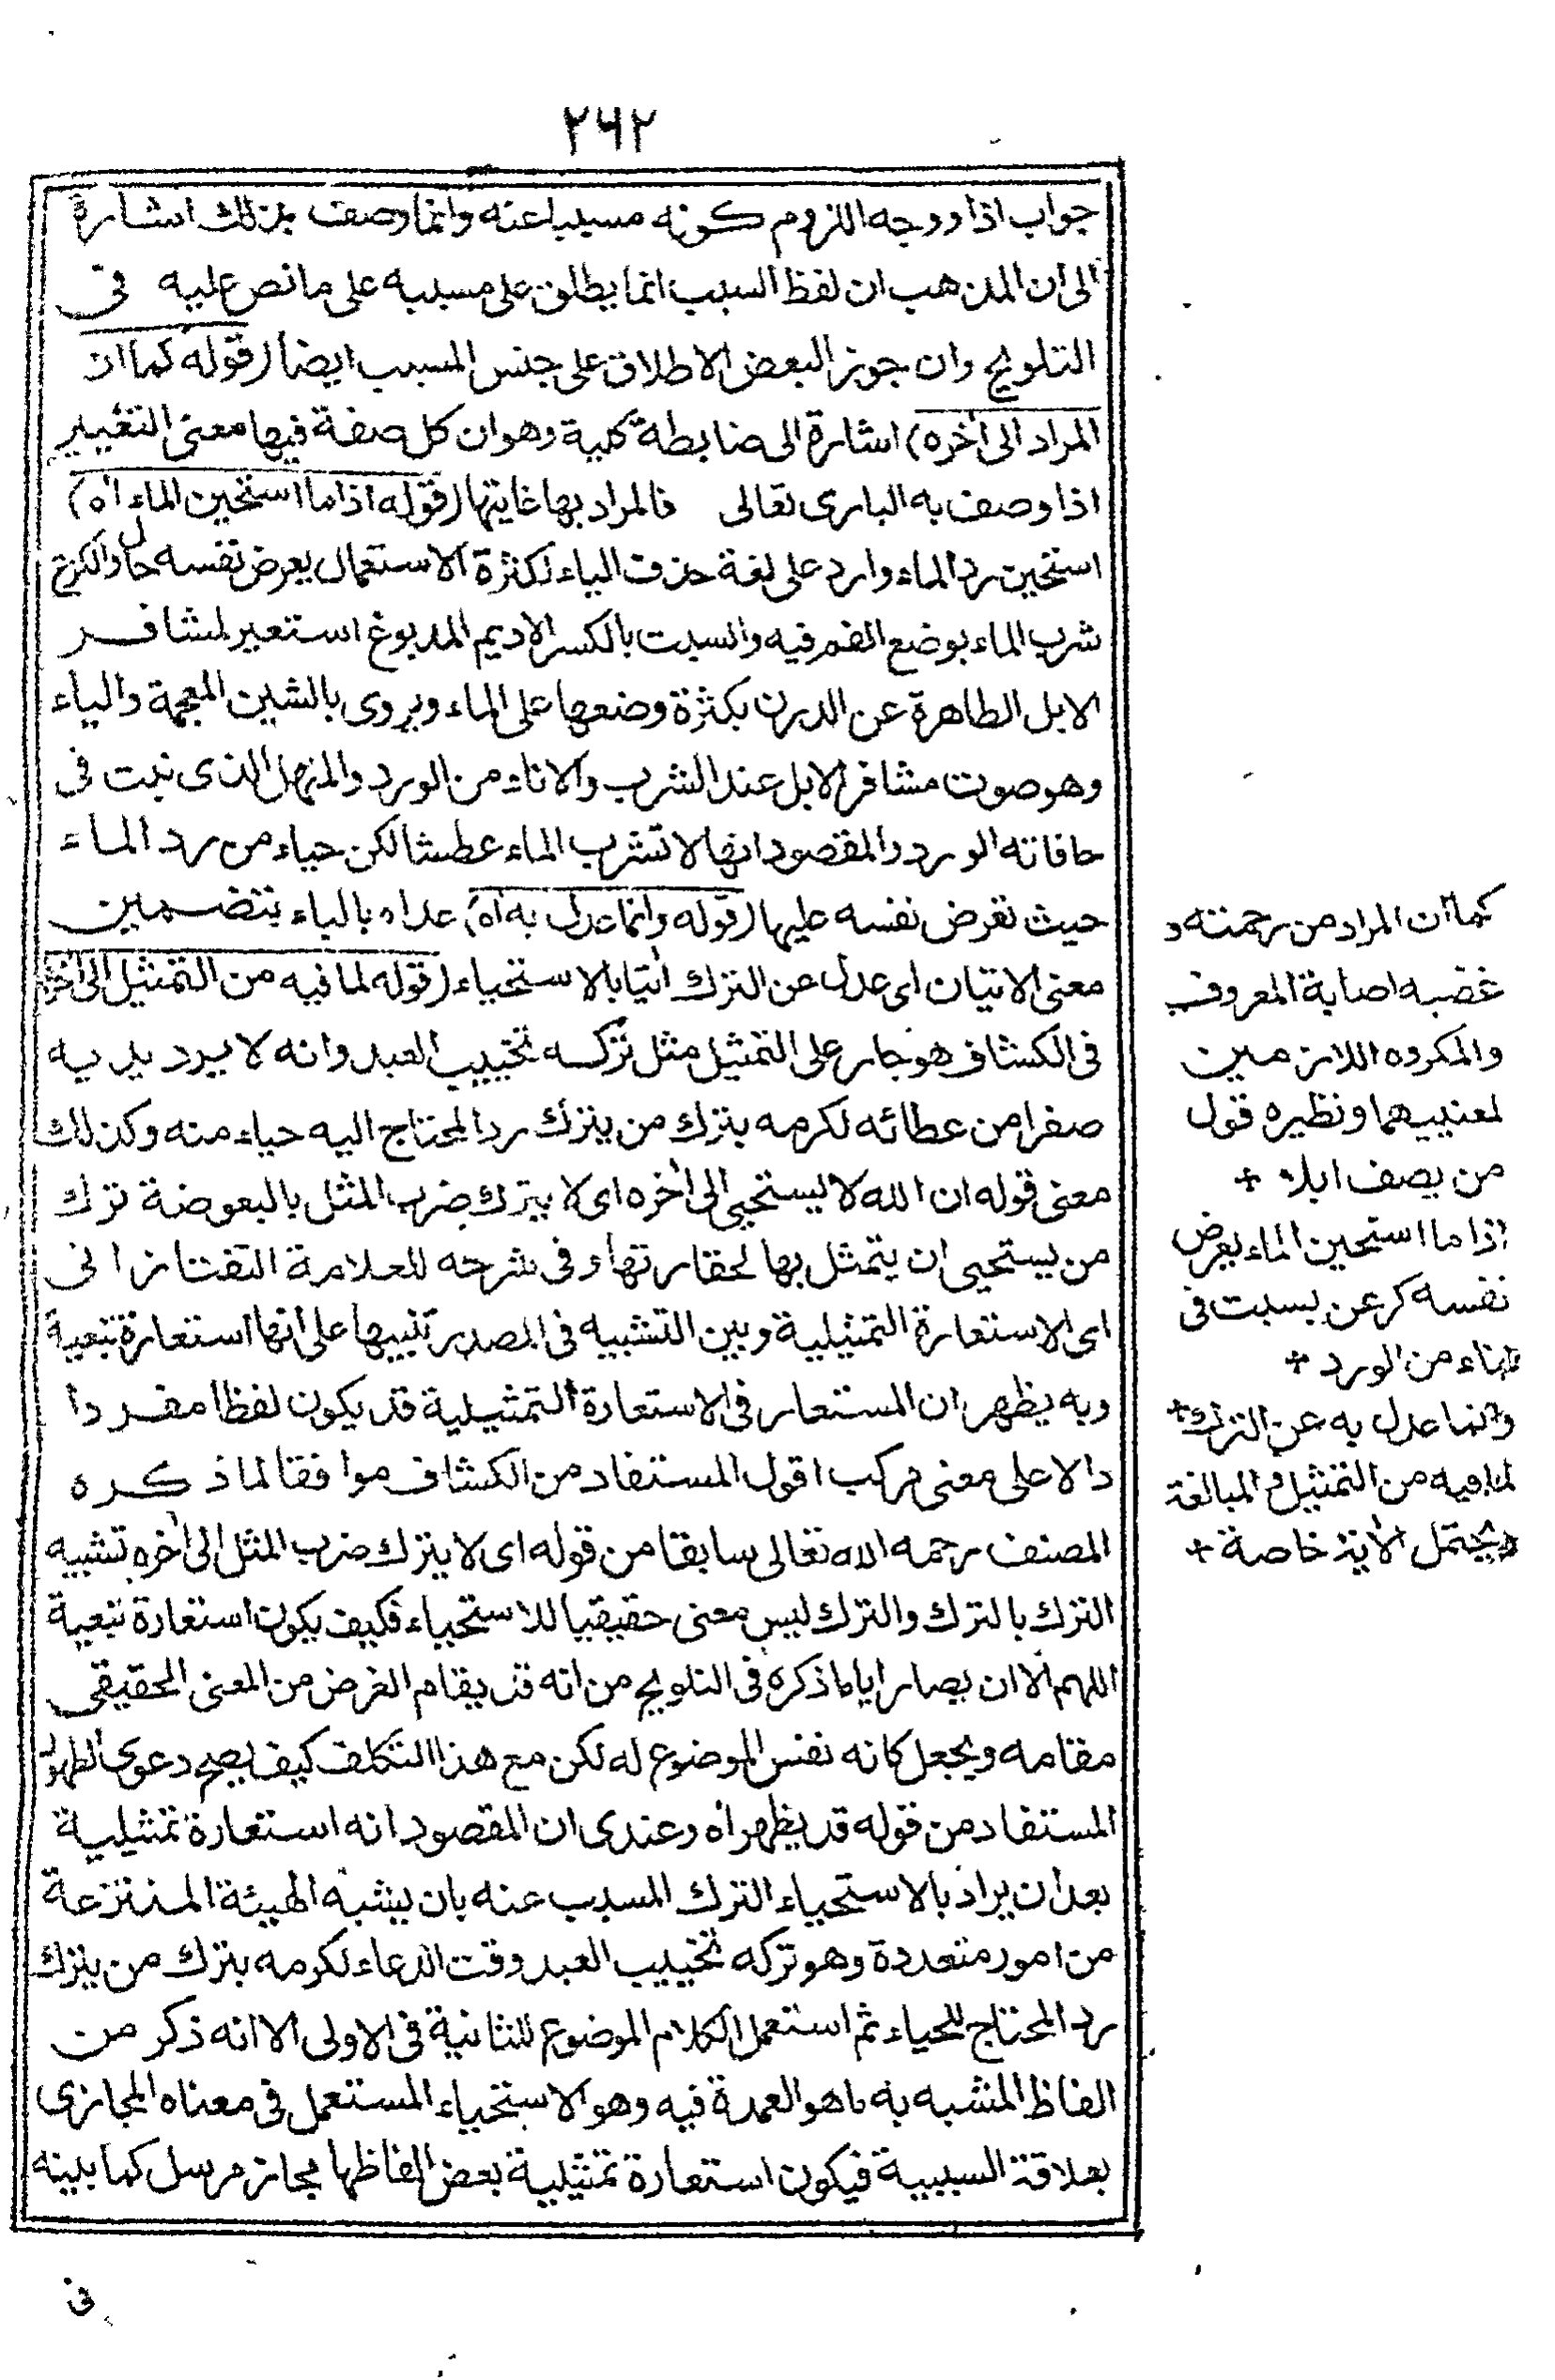 ٢٦٢
جواب اذا ووجه اللزوم كونه مسببا عنه وانما وصف بذلك اشارة
الى ان المذهب ان لفظ السبب انما يطلق على مسببه على ما نص عليه فى
التلويح وان جوز البعض الاطلاق على جنس المسبب ايضا (قوله كما ان
المراد الى آخره) اشارة الى ضابطة كلية وهو ان كل صفة فيها معنى التغيير
اذا وصف به البارى تعالى فالمراد بها غايتها (قوله اذا ما استحين الماء اه)
استحين رد الماء وارد على لغة حذف الياء لكثرة الاستعمال يعرض نفسه حال والكرع
شرب الماء بوضع الفم فيه والسبت بالكسر الاديم المدبوغ استعير لمشافر
الابل الطاهرة عن الدرن بكثرة وضعها على الماء ويروى بالشين المعجمة والياء
وهو صوت مشافر الابل عند الشرب والاناء من الورد والمنهل الذى نبت فى
حافاته الورد والمقصود انها لا تشرب الماء عطشا لكن حياء من رد الماء
حيث تعرض نفسه عليها (قوله وانما عدل به اه) عداه بالباء بتضمين
معنى الاتيان اى عدل عن الترك اتيا بالاستحياء (قوله لما فيه من التمثيل الى آخره)
فى الكشاف هو جار على التمثيل مثل تركه تخييب العبد وانه لا يرد يديه
صفرا من عطائه لكرمه بترك من يترك رد المحتاج اليه حياء منه وكذلك
معنى قوله ان الله لا يستحيى الى آخره اى لا يترك ضرب المثل بالبعوضة ترك
من يستحيى ان يتمثل بها لحقارتها وفى شرحه للعلامة التفتازانى
اى الاستعارة التمثيلية وبين التشبيه فى المصدر تنبيها على انها استعارة تبعية
وبه يظهر ان المستعار فى الاستعارة التمثيلية قد يكون لفظا مفردا
دالا على معنى مركب اقول المستفاد من الكشاف موافقا لما ذكره
المصنف رحمه الله تعالى سابقا من قوله اى لا يترك ضرب المثل الى آخره تشبيه
الترك بالترك والترك ليس معنى حقيقيا للاستحياء فكيف يكون استعارة تبعية
اللهم الا ان يصار الى ما ذكره فى التلويح من انه قد يقام الغرض من المعنى الحقيقى
مقامه ويجعل كانه نفس الموضوع له لكن مع هذا التكلف كيف يصح دعوى الظهور
المستفاد من قوله قد يظهر اه وعندى ان المقصود انه استعارة تمثيلية
بعد ان يراد بالاستحياء الترك المسبب عنه بان يشبه الهيئة المنتزعة
من امور متعددة وهو تركه تخييب العبد وقت الدعاء لكرمه بترك من يترك
رد المحتاج للحياء ثم استعمل الكلام الموضوع للثانية فى الاولى الا انه ذكر من
الفاظ المشبه به ما هو العمدة فيه وهو الاستحياء المستعمل فى معناه المجازى
بعلاقة السببية فيكون استعارة تمثيلية بعض الفاظها مجاز مرسل كما بينه
فى
كما ان المراد من رحمته و
غضبه اصابة المعروف
والمكروه اللازمين
لمعنييهما ونظيره قول
من يصف ابلا +
اذا ما استحين الماء يعرض
نفسه كرعن بسبت فى
اناء من الورد +
وانما عدل به عن الترك +
لما فيه من التمثيل والمبالغة
ويحتمل الآية خاصة +